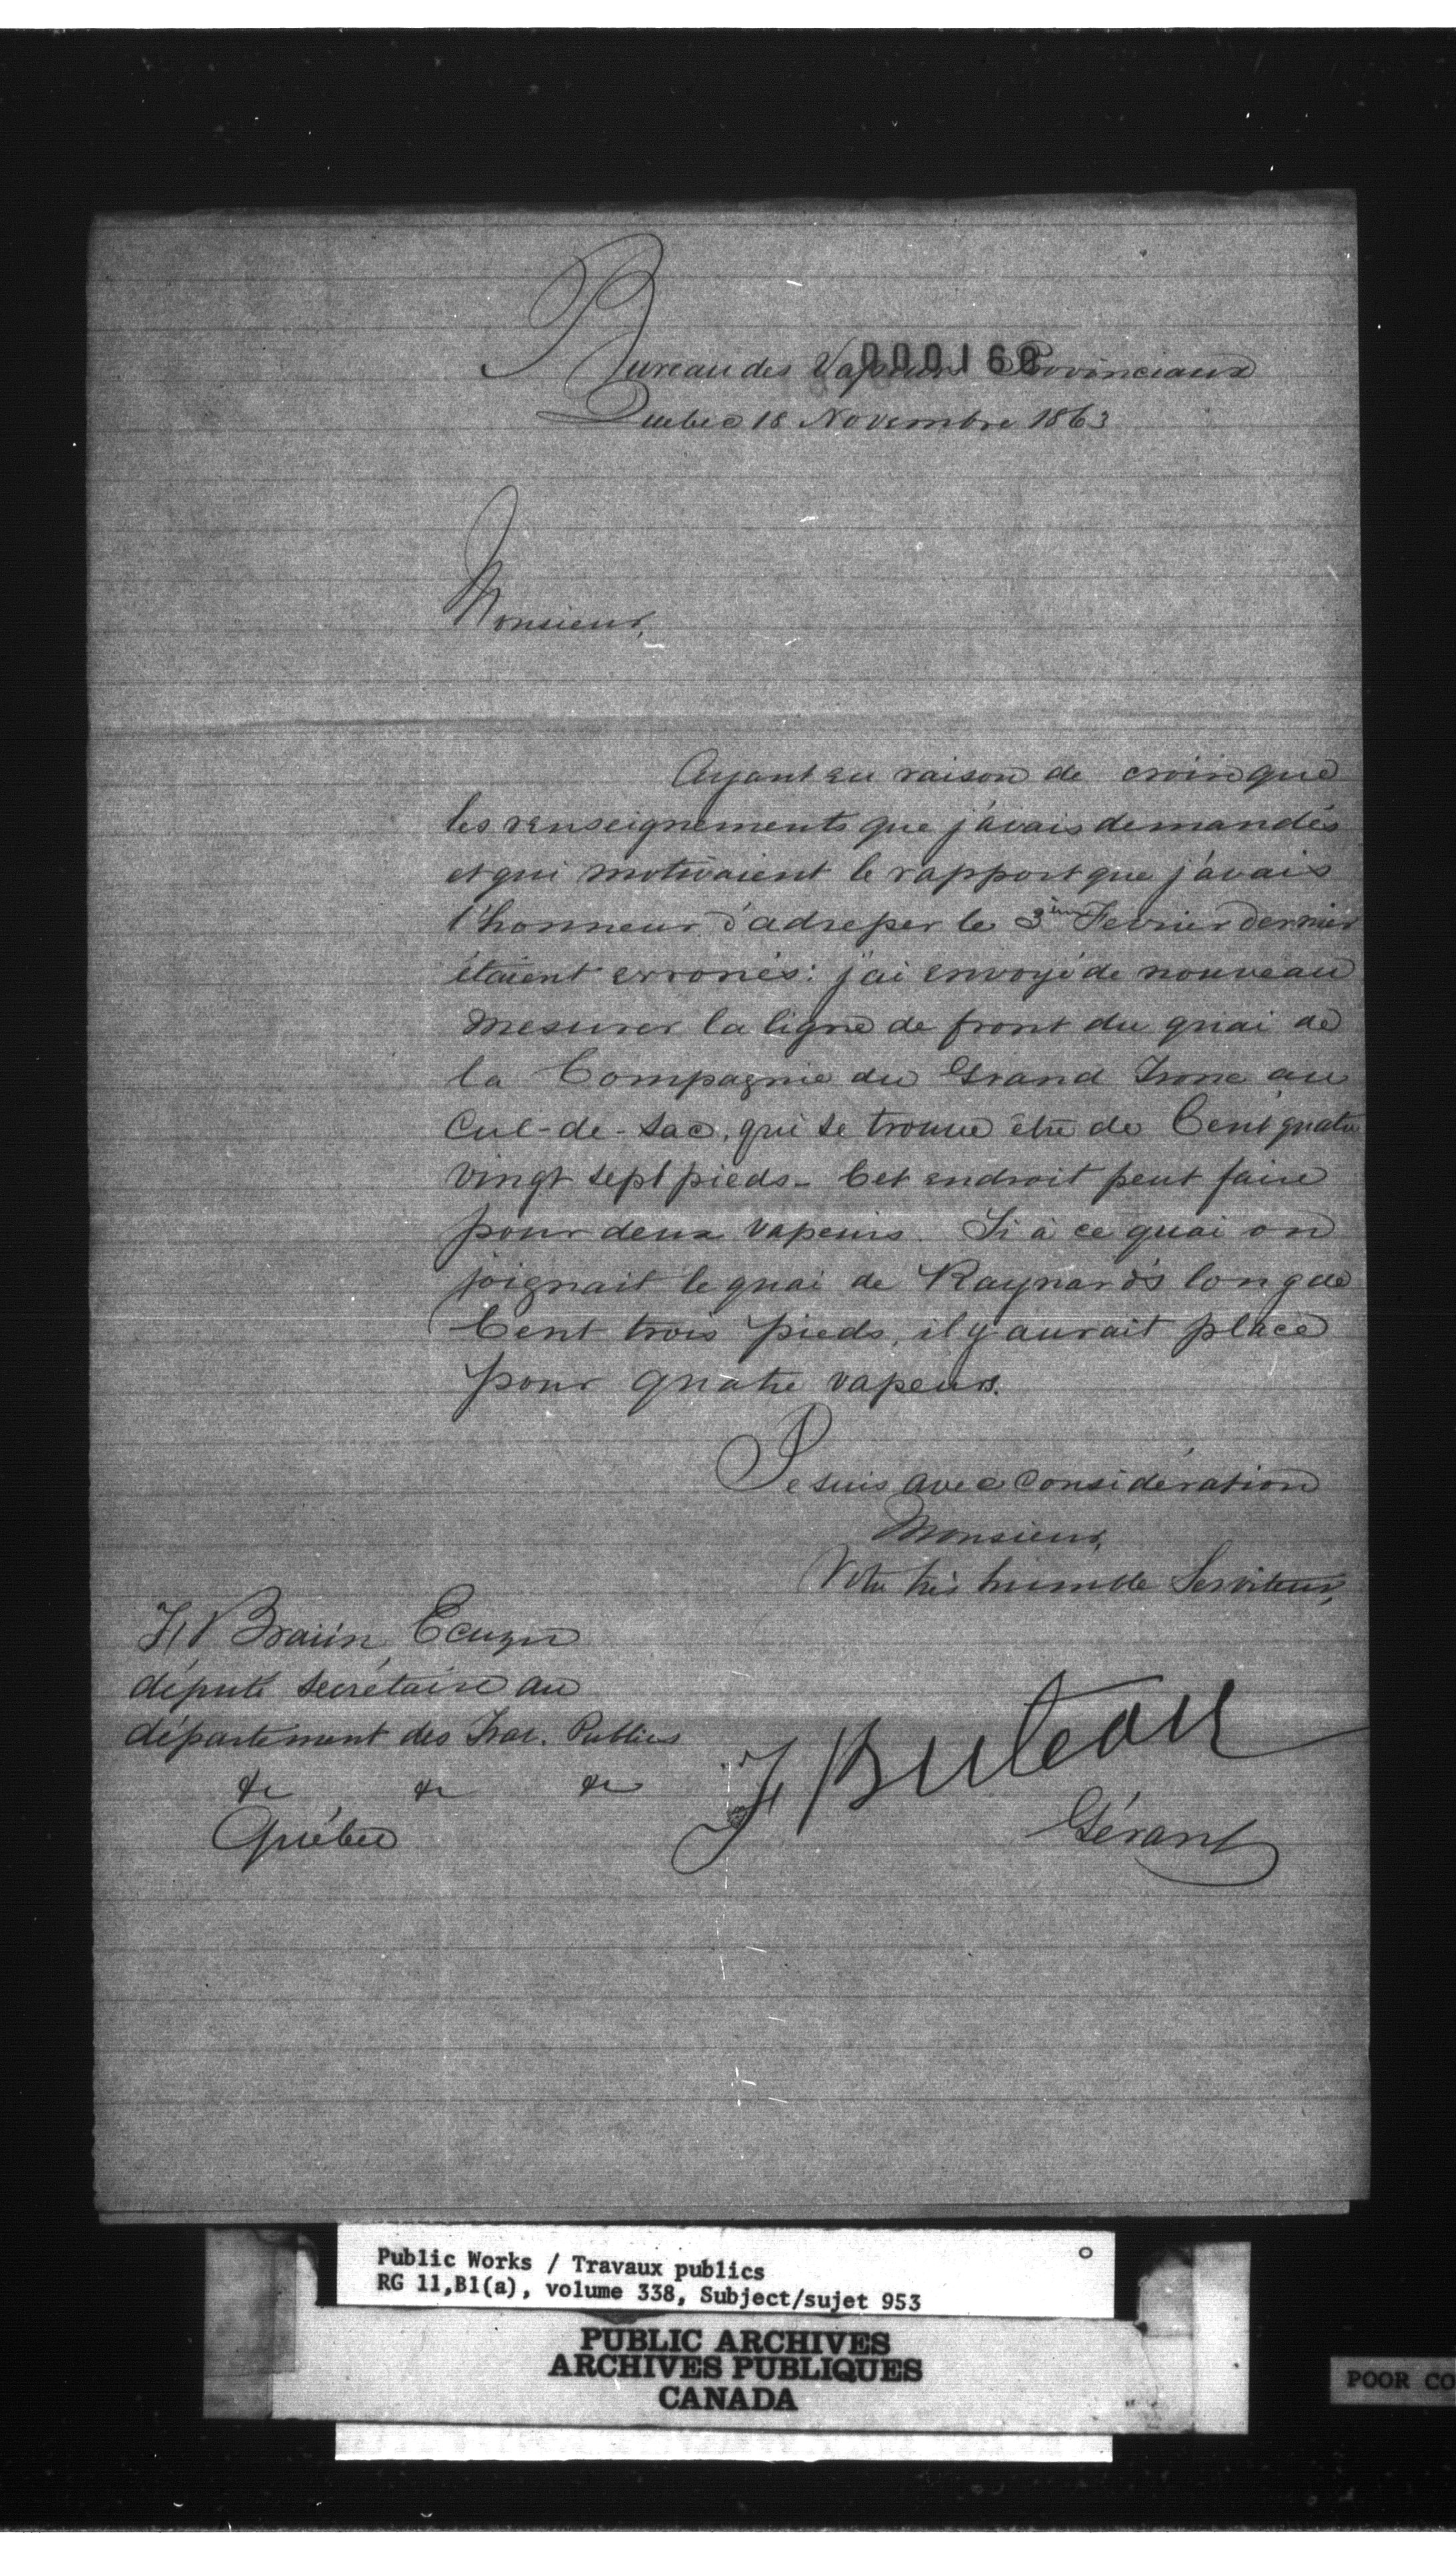 000160
Bureau des Vapeurs Provinciaux
Quebec 18 Novembre 1863
Monsieur,
Ayant eu raison de croire que
les renseignements que j'avais demandés
et qui motivaient le rapport que j'avais
l'honneur d'adresser le 3ième Fevrier dernier
étaient erronés: j'ai envoyé de nouveau
mesurer la ligne de front du quai de
la Compagnie du Grand Tronc au
Cul-de-Sac, qui se trouve être de Cent quatre
vingt sept pieds_ Cet endroit peut faire
pour deux vapeurs. Si à ce quai on
joignait le quai de Raynard's long de
Cent trois pieds, il y aurait place
pour quatre vapeurs.
Je suis avec considération
Monsieur,
Votre très humble Serviteur,
F Braün Ecuyer
député secrétaire au
département des Trav. Publics
&c &c &c
Québec
F Buteau
Gérant
Public Works / Travaux publics
RG 11,B1(a), volume 338, Subject/sujet 953
PUBLIC ARCHIVES
ARCHIVES PUBLIQUES
CANADA
POOR CO